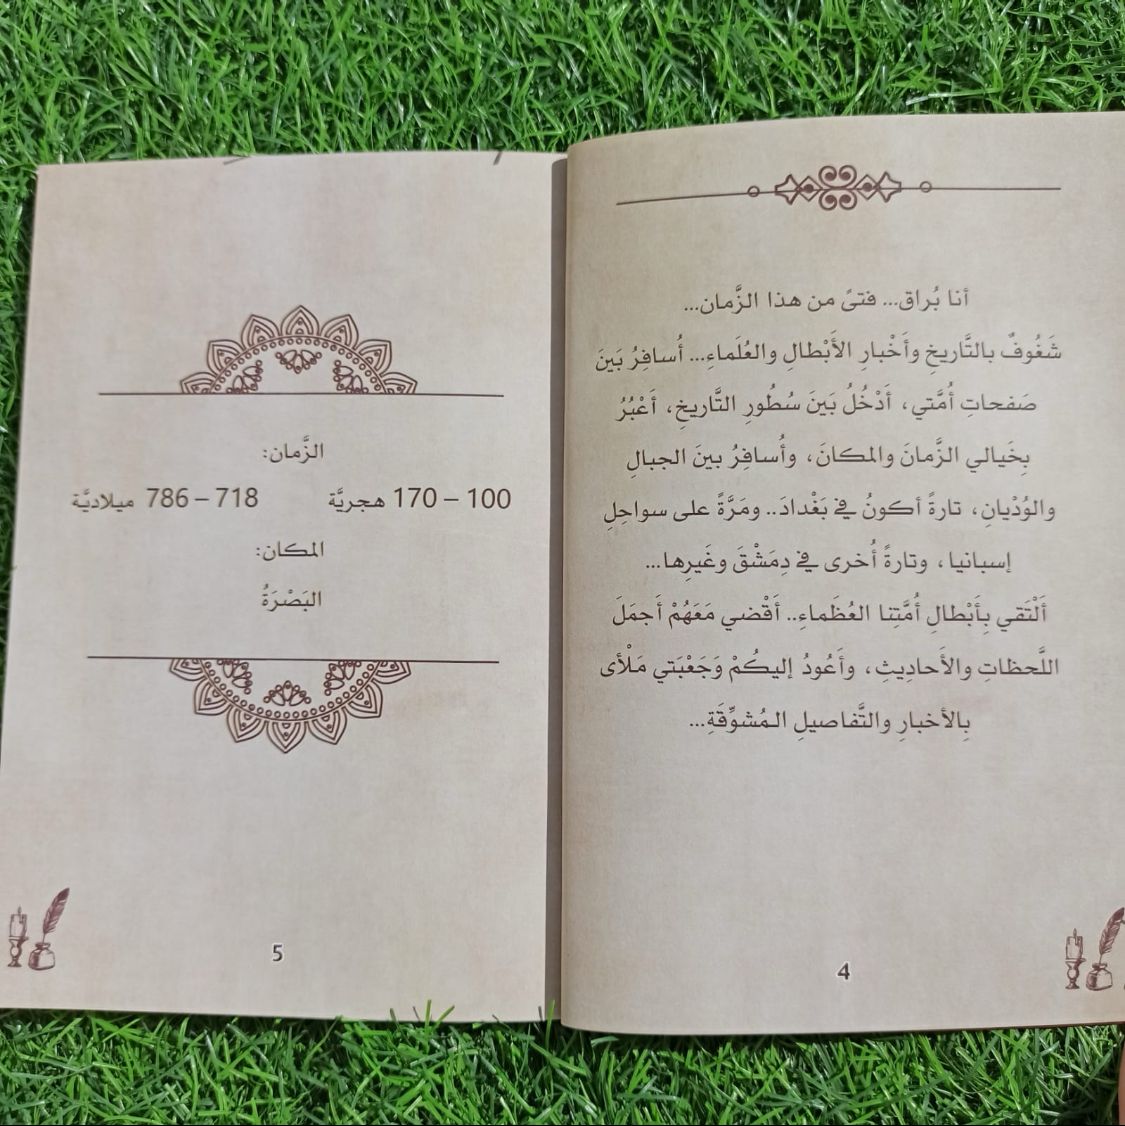 أنا بُراق... فتىً من هذا الزَّمان...
شَغُوفٌ بالتَّاريخِ وأَخْبارِ الأَبْطالِ والعُلَماءِ... أُسافِرُ بَينَ
صَفحاتِ أُمَّتي، أَدْخُلُ بَينَ سُطُورِ التَّاريخِ، أَعْبُرُ
بِخَيالي الزَّمانَ والمكانَ، وأُسافِرُ بينَ الجبالِ
والوُدْيانِ، تارةً أكونُ في بَغْدادَ.. ومَرَّةً على سواحِلِ
إسبانيا، وتارةً أُخرى في دِمَشْقَ وغَيرِها...
أَلْتَقي بِأَبْطالِ أُمَّتِنا العُظَماءِ.. أَقْضي مَعَهُمْ أَجمَلَ
اللَّحظاتِ والأَحاديثِ، وأَعُودُ إليكُمْ وَجَعْبَتي مَلْأى
بِالأخبارِ والتَّفاصيلِ المُشوِّقَةِ...
4
الزَّمان:
100 – 170 هجريَّة 718 – 786 ميلاديَّة
المكان:
البَصْرَةُ
5